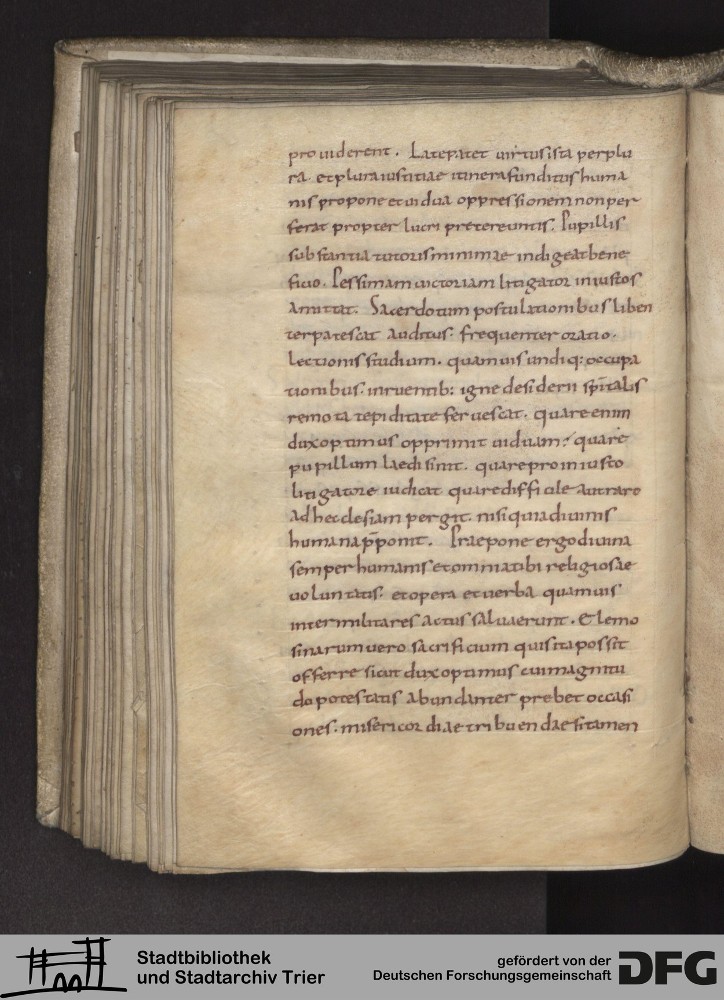 prouiderent. Late patet uirtus ista per plu
ra. et plura iustitiae itinera funditus huma
nis propone et uidua oppressionem non per
ferat propter lucri pretereuntis. Pupillis
substantia tutoris minimae indigeat bene
ficio. Pessimam uictoriam litigator iniustos
amittat. Sacerdotum postulationibus liben
ter patescat auditus. frequenter oratio.
lectionis studium. quamuis undiq: occupa
tionibus. inruentib: igne desiderii sp̄italis
remota tepiditate feruescat. quare enim
dux optimus opprimit uiduam: quare
pupillum laedi sinit. quare pro iniusto
litigatore iudicat quare difficile aut raro
ad hecclesiam pergit. nisi quia diuinis
humana p̄ponit. Praepone ergo diuina
semper humanis et omnia tibi religiosae
uoluntatis. et opera et uerba quamuis
inter militares actus saluaerunt. Elemo
sinarum uero sacrificium quis ita possit
offerre sicut dux optimus cui magnitu
do potestatis abundanter prebet occasi
ones. misericordiae tribuendae si tamen
Stadtbibliothek
und Stadtarchiv Trier
gefördert von der
Deutschen Forschungsgemeinschaft
DFG